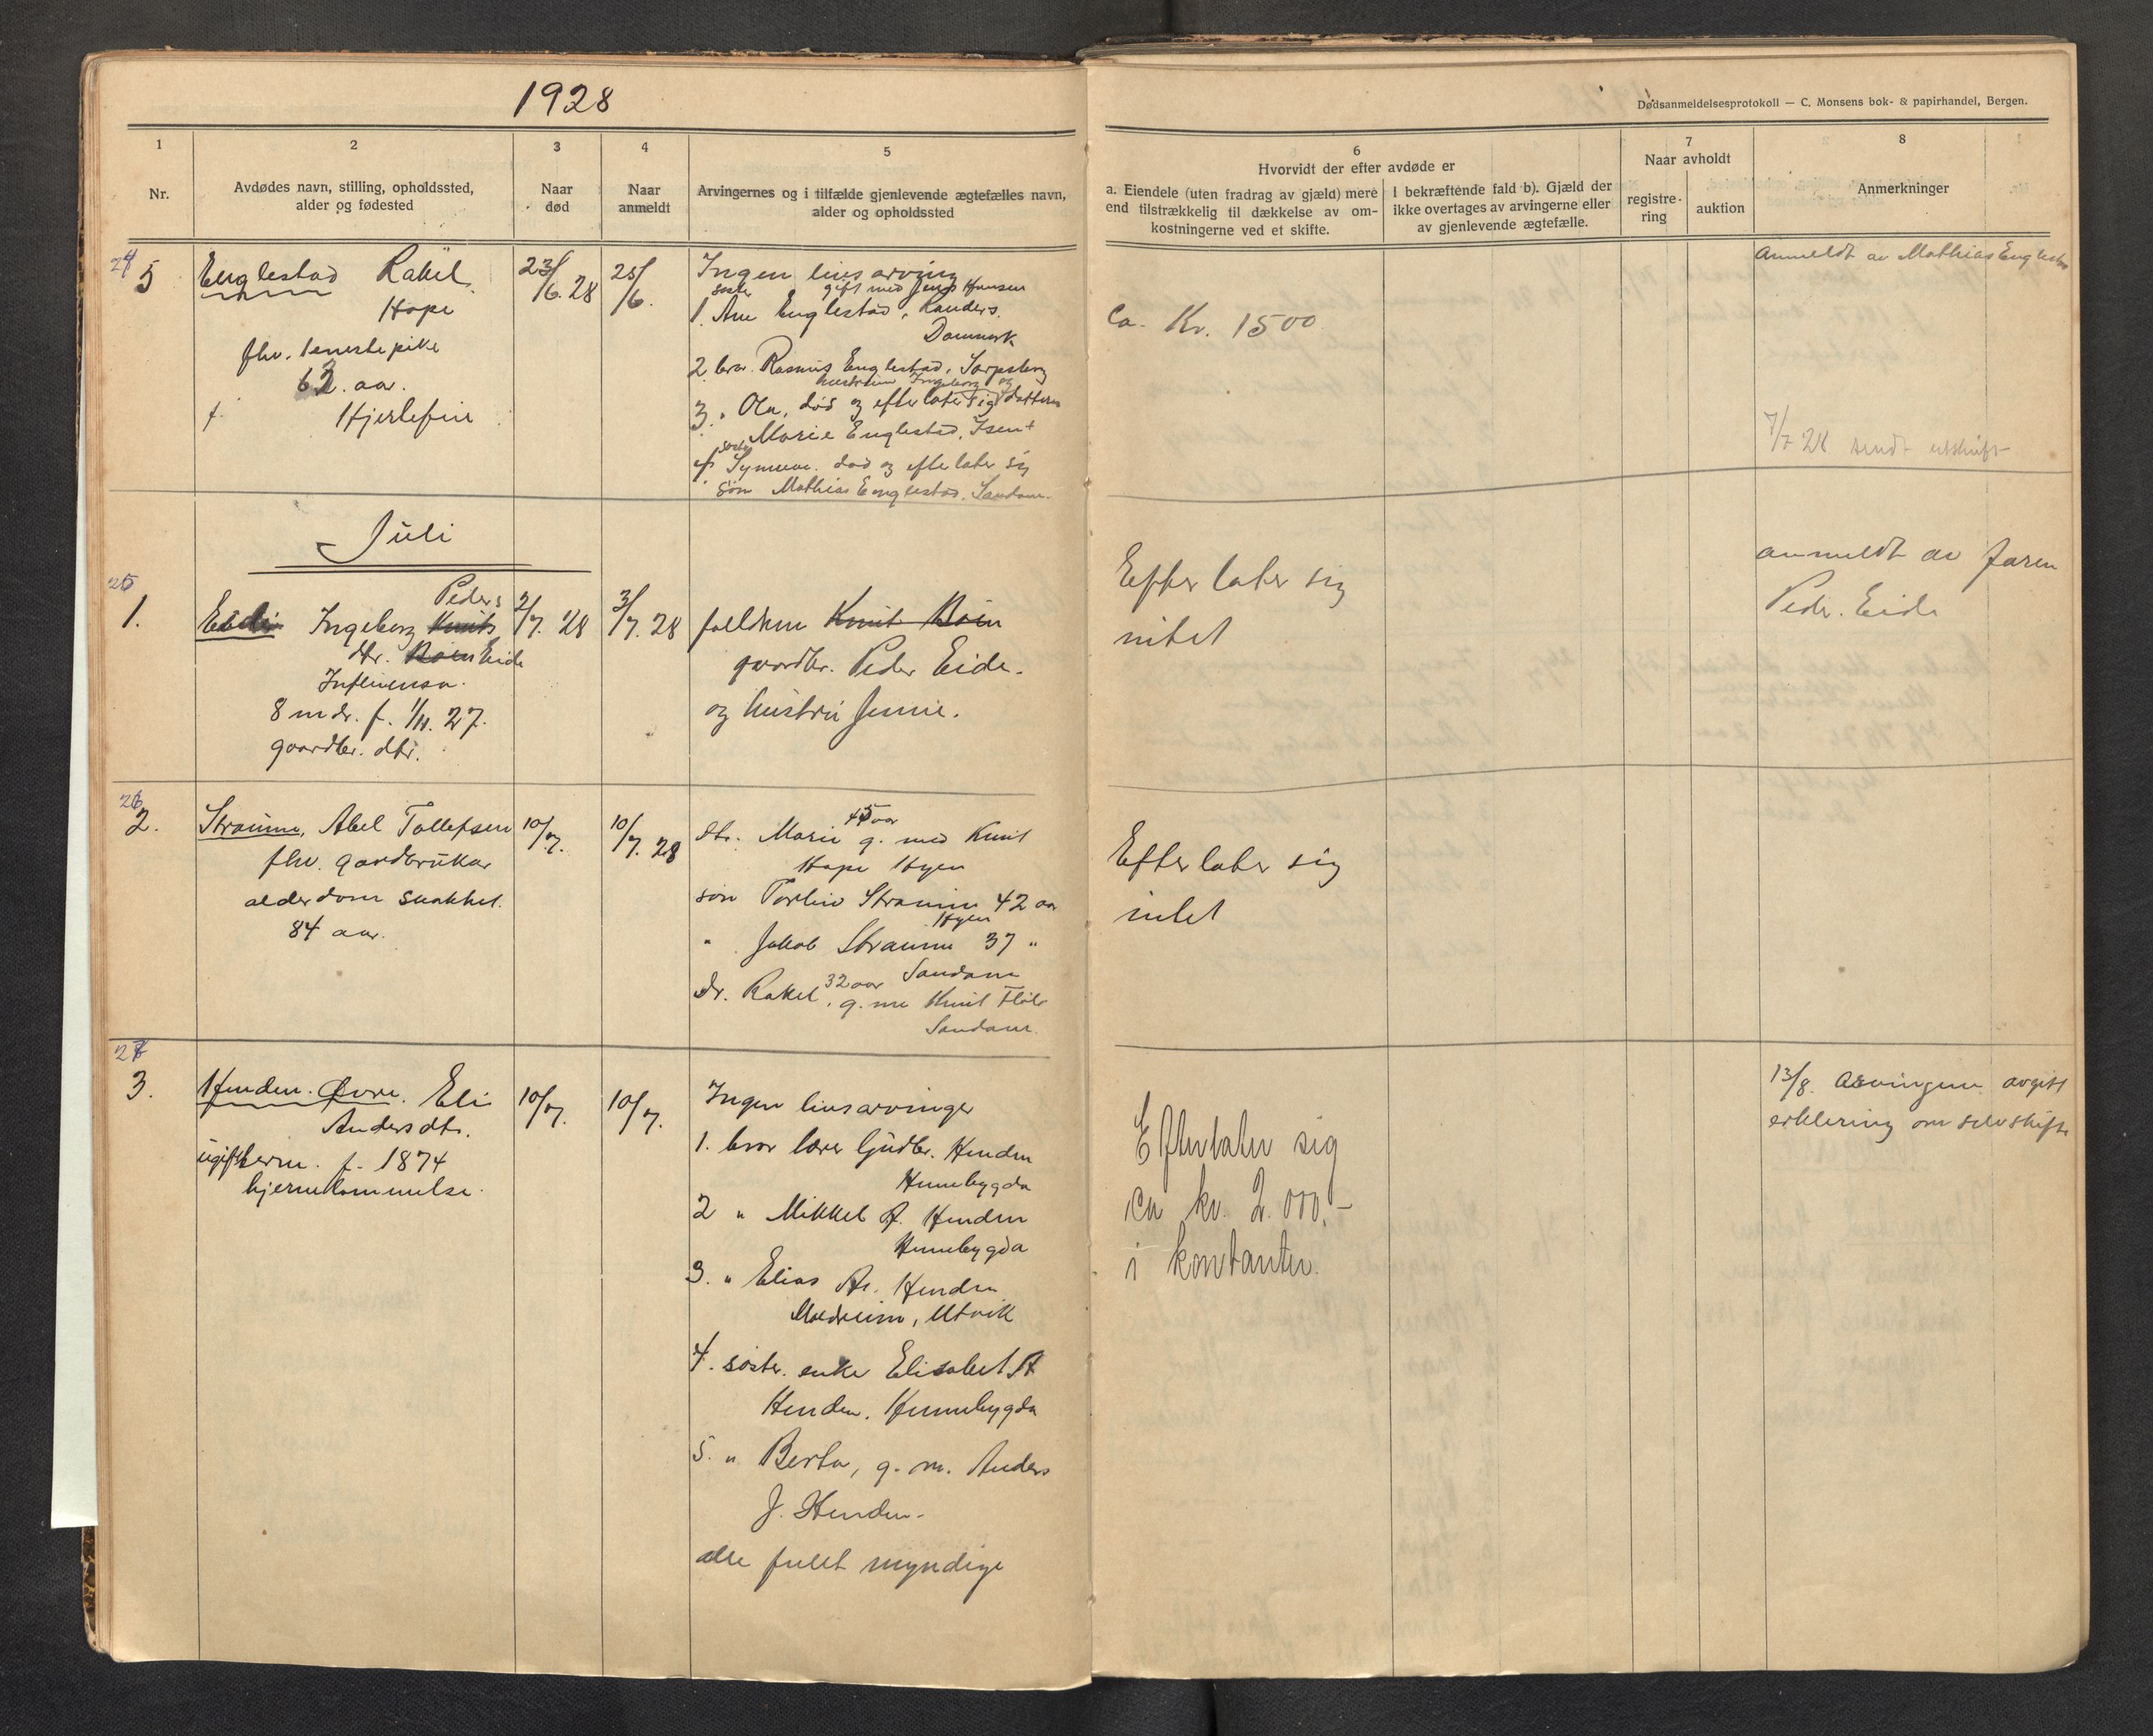 1928
Dødsanmeldelsesprotokoll — C. Monsens bok- & papirhandel, Bergen.
1
Nr.
2
Avdødes navn, stilling, opholdssted,
alder og fødested
3
Naar
død
4
Naar
anmeldt
5
Arvingernes og i tilfælde gjenlevende ægtefælles navn,
alder og opholdssted
6
Hvorvidt der efter avdøde er
a. Eiendele (uten fradrag av gjæld) mere
end tilstrækkelig til dækkelse av om-
kostningerne ved et skifte.
I bekræftende fald b). Gjæld der
ikke overtages av arvingerne eller
av gjenlevende ægtefælle.
7
Naar avholdt
registre-
ring
auktion
8
Anmerkninger
24
5
Englestad Rakel
Hope
fhv. tenestepike
62. aar.
f. Hjerlefin
23/6. 28
25/6.
Ingen livsarving
søster gift med Jens Hansen
1. Ane Englestad, Randers.
Danmark
2. bror. Rasmus Englestad, Sarpsborg
hustruen Ingeborg og
3. " Ola, død og efterlater sig datteren
Marie Englestad, Isen +
søster
4. Synneve. død og efterlater sig
søn Mathias Englestad. Sandane.
Ca. Kr. 1500
Anmeldt av Mathias Englestad
7/7 28 sendt utskrift
Juli
25
1.
Peders
Eide Ingeborg Knuts
dtr. Eide
Influensa.
8 mdr. f. 1/11. 27.
gaardbr. dtr.
2/7. 28
3/7. 28
foeldrene Knut
gaardbr. Peder Eide.
og hustru Jennie.
Efterlater sig
intet
anmeldt av faren
Peder. Eide
26
2.
Straume, Abel Tollefsen
fhv. gardbrukar
alderdom svakhet.
84 aar.
10/7.
10/7. 28
45 aar
dtr. Marie g. med Knut
Hope Hyen
søn Torleiv Straume 42 aar
Hyen
" Jakob Straume 37 "
Sandane
dr. Rakel, 32 aar g. m. Knut Fløte
Sandane.
Efterlater sig
intet
27
3.
Henden. Øvre. Eli
Andersdtr.
ugift f. 1874
hjernelammelse.
10/7.
10/7.
Ingen livsarvinger
1. bror lærer Gudbr. Henden
Hennebygda
2 " Mikkel A. Henden
Hennebygda
3. " Elias A. Henden
Moldreim, Utvik
4. søster. enke Elisabet A
Henden. Hennebygda
5. " Berta, g. m. Anders
J. Henden.
alle fullt myndige
Efterlater sig
ca kr. 2.000.-
i kontanter.
13/8. Arvingene avgitt
erklering om selvskifte